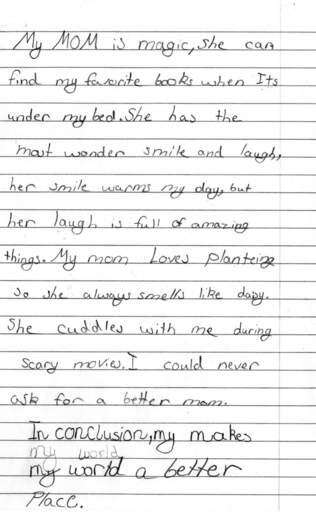 My MOM is magic, she can
find my favorite books when Its
under my bed. She has the
most wonder smile and laugh,
her smile warms my day, but
her laugh is full of amazing
things. My mom Loves planteing
so she always smells like dapy.
She cuddles with me during
scary movies. I could never
ask for a better mom.
In conclusion, my makes
my world
my world a better
Place.